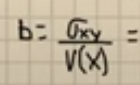 b = σxy / V(X) =